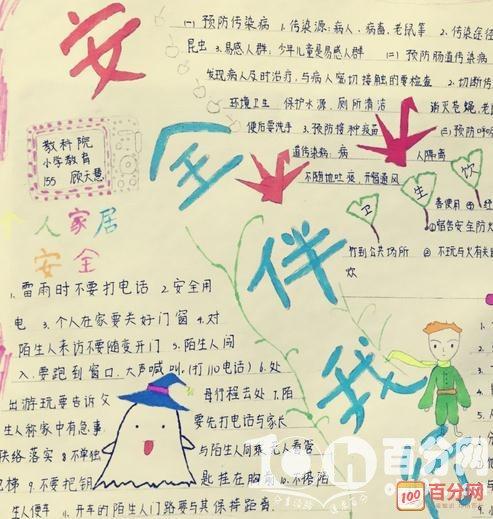 安全伴我行
(一) 预防传染病 1. 传染源: 病人、病毒、老鼠等 2. 传染途径
昆虫 3. 易感人群: 少年儿童是易感人群 (二) 预防肠道传染病
发现病人及时治疗, 与病人密切接触的要检查 2. 切断传
环境卫生 保护水源、厕所清洁 消灭苍蝇、老
便后要洗手 3. 预防接种疫苗 (三) 预防呼
道传染病: 病 人隔离
不随地吐痰, 开窗通风
卫 生 饮
教科院
小学教育
155 顾天慧
个人家居
安全
1. 雷雨时不要打电话 2. 安全用
电 3. 个人在家要关好门窗 4. 对
陌生人来访不要随便开门 5. 陌生人闯
入, 要跑到窗口, 大声喊叫 (打110电话) 6. 外
出游玩要告诉父 母行程去处 7. 陌
生人称家中有急事 要先打电话与家长
联络落实 8. 不单独 与陌生人同乘
9. 不要把钥 匙挂在胸前 10. 不搭陌
生人便车 11. 开车的陌生人门路要与其保持距离
①
②不玩与火有关
到公共场所
100百分网
100 百分网